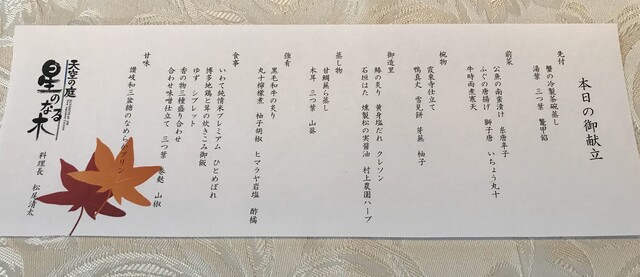 本日の御献立
先付
蟹の冷製茶碗蒸し
湯葉 三つ葉 鼈甲餡
前菜
公魚の南蛮漬け 糸唐辛子
ふぐの唐揚げ 獅子唐 いちょう丸十
牛時雨煮寒天
椀物
霞東寺仕立て
鴨真丈 雪見餅 芽葱 柚子
御造里
鰆の炙り 黄身塩だれ クレソン
石垣はた 燻製松の実醤油 村上農園ハーブ
蒸し物
甘鯛蕪ら蒸し
木耳 三つ葉 山葵
強肴
黒毛和牛の炙り
丸十檸檬煮 柚子胡椒 ヒマラヤ岩塩 酢橘
食事
いわて純情米プレミアム ひとめぼれ
博多地鶏と茸の炊きこみ御飯
ゆず オリーブレット
香の物三種盛り合わせ
合わせ味噌仕立て 三つ葉 巻麩 山椒
甘味
讃岐和三盆糖のなめらかプリン
天空の庭
星のなる木
料理長 松尾清太